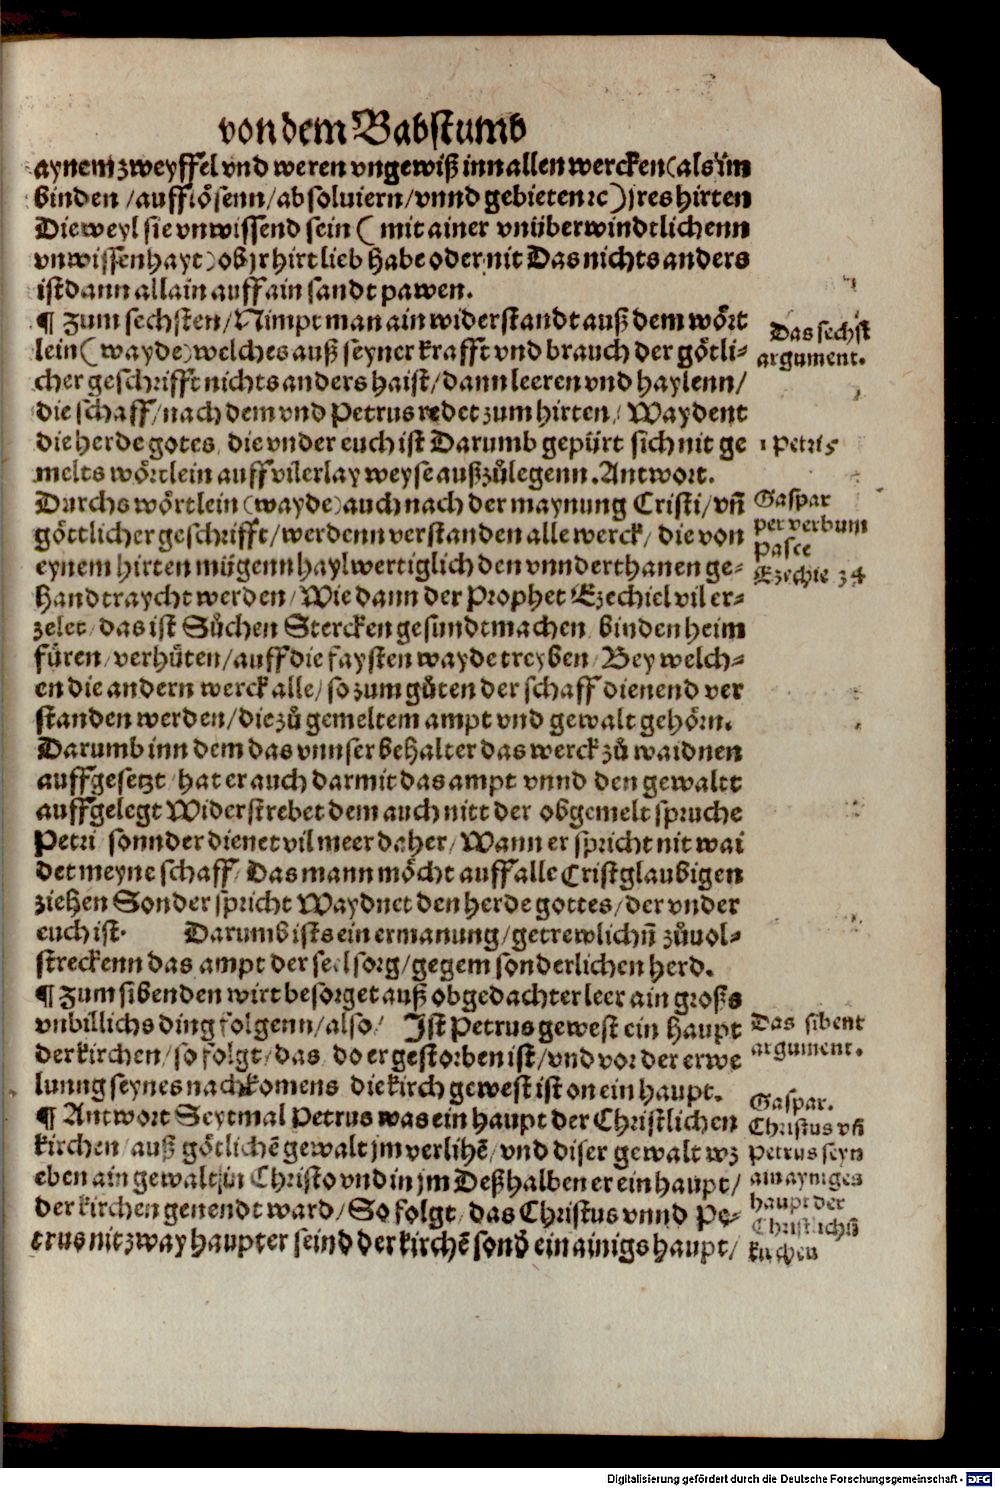 von dem Babstumb
aynem zweyffel vnd weren vngewiß inn allen wercken (als im
binden / aufflösenn / absoluiern / vnnd gebieten ꝛc) jres hirten
Die weyl sie vnwissend sein ( mit ainer vnüberwindtlichenn
vnwissenhayt ) ob jr hirt lieb habe oder nit Das nichts anders
ist dann allain auff ain sandt pawen.
¶ Zum sechsten / Nimpt man ain widerstandt auß dem wört
lein ( wayde ) welches auß seyner krafft vnd brauch der götli-
cher geschrifft nichts anders haist / dann leeren vnd haylenn /
die schaff / nach dem vnd Petrus redet zum hirten / Waydent
die herde gotes, die vnder euch ist Darumb gepürt sich nit ge
melts wörtlein auff vilerlay weyse außzůlegenn. Antwort.
Durchs wörtlein (wayde) auch nach der maynung Cristi / vñ
göttlicher geschrifft / werdenn verstanden alle werck / die von
eynem hirten mügenn haylwertiglich den vnnderthanen ge-
handtraycht werden / Wie dann der Prophet Ezechiel vil er-
zelet / das ist Sůchen Stercken gesundtmachen / binden heim
füren / verhüten / auff die faysten wayde treyben / Bey welch-
en die andern werck alle / so zum gůten der schaff dienend ver
standen werden / die zů gemeltem ampt vnd gewalt gehörn.
Darumb inn dem das vnnser behalter das werck zů waidnen
auffgesetzt / hat er auch darmit das ampt vnnd den gewaltt
auffgelegt Widerstrebet dem auch nitt der obgemelt spruche
Petri sonnder dienet vil meer daher / Wann er spricht nit wai
det meyne schaff / Das mann möcht auff alle Cristglaubigen
ziehen Sonder spricht Waydnet den herde gottes / der vnder
euch ist. Darumb ists ein ermanung / getrewlichñ zůuol-
streckenn das ampt der seelsorg / gegem sonderlichen herd.
¶ Zum sibenden wirt besorget auß obgedachter leer ain gross
vnbillichs ding folgenn / also / Ist Petrus gewest ein haupt
der kirchen / so folgt / das do er gestorben ist / vnd vor der erwe
lunng seynes nachkomens die kirch gewest ist on ein haupt.
¶ Antwort Seytmal Petrus was ein haupt der Christlichen
kirchen / auß götlichē gewalt jm verlihē / vnd diser gewalt wz
eben ain gewalt jn Christo vnd in jm Deßhalben er ein haupt /
der kirchen genendt ward / So folgt / das Christus vnnd Pe-
trus nit zway haupter seind der kirchē sonð ein ainigs haupt /
Das sechst
argument.
1 Petri 5
Gaspar
per verbum
Pasce
Ezechie 34
Das sibent
argument.
Gaspar.
Christus vñ
Petrus seyn
ain ayniges
haupt der
Christlichñ
kirchen
Digitalisierung gefördert durch die Deutsche Forschungsgemeinschaft - DFG